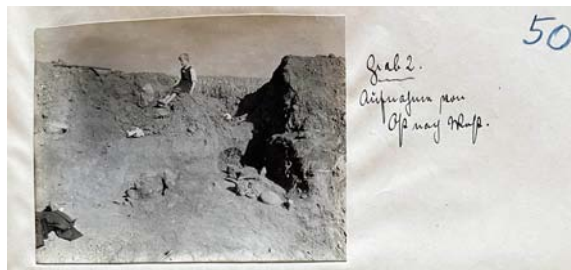 50
Grab 2.
Aufnahme von
Ost nach West.